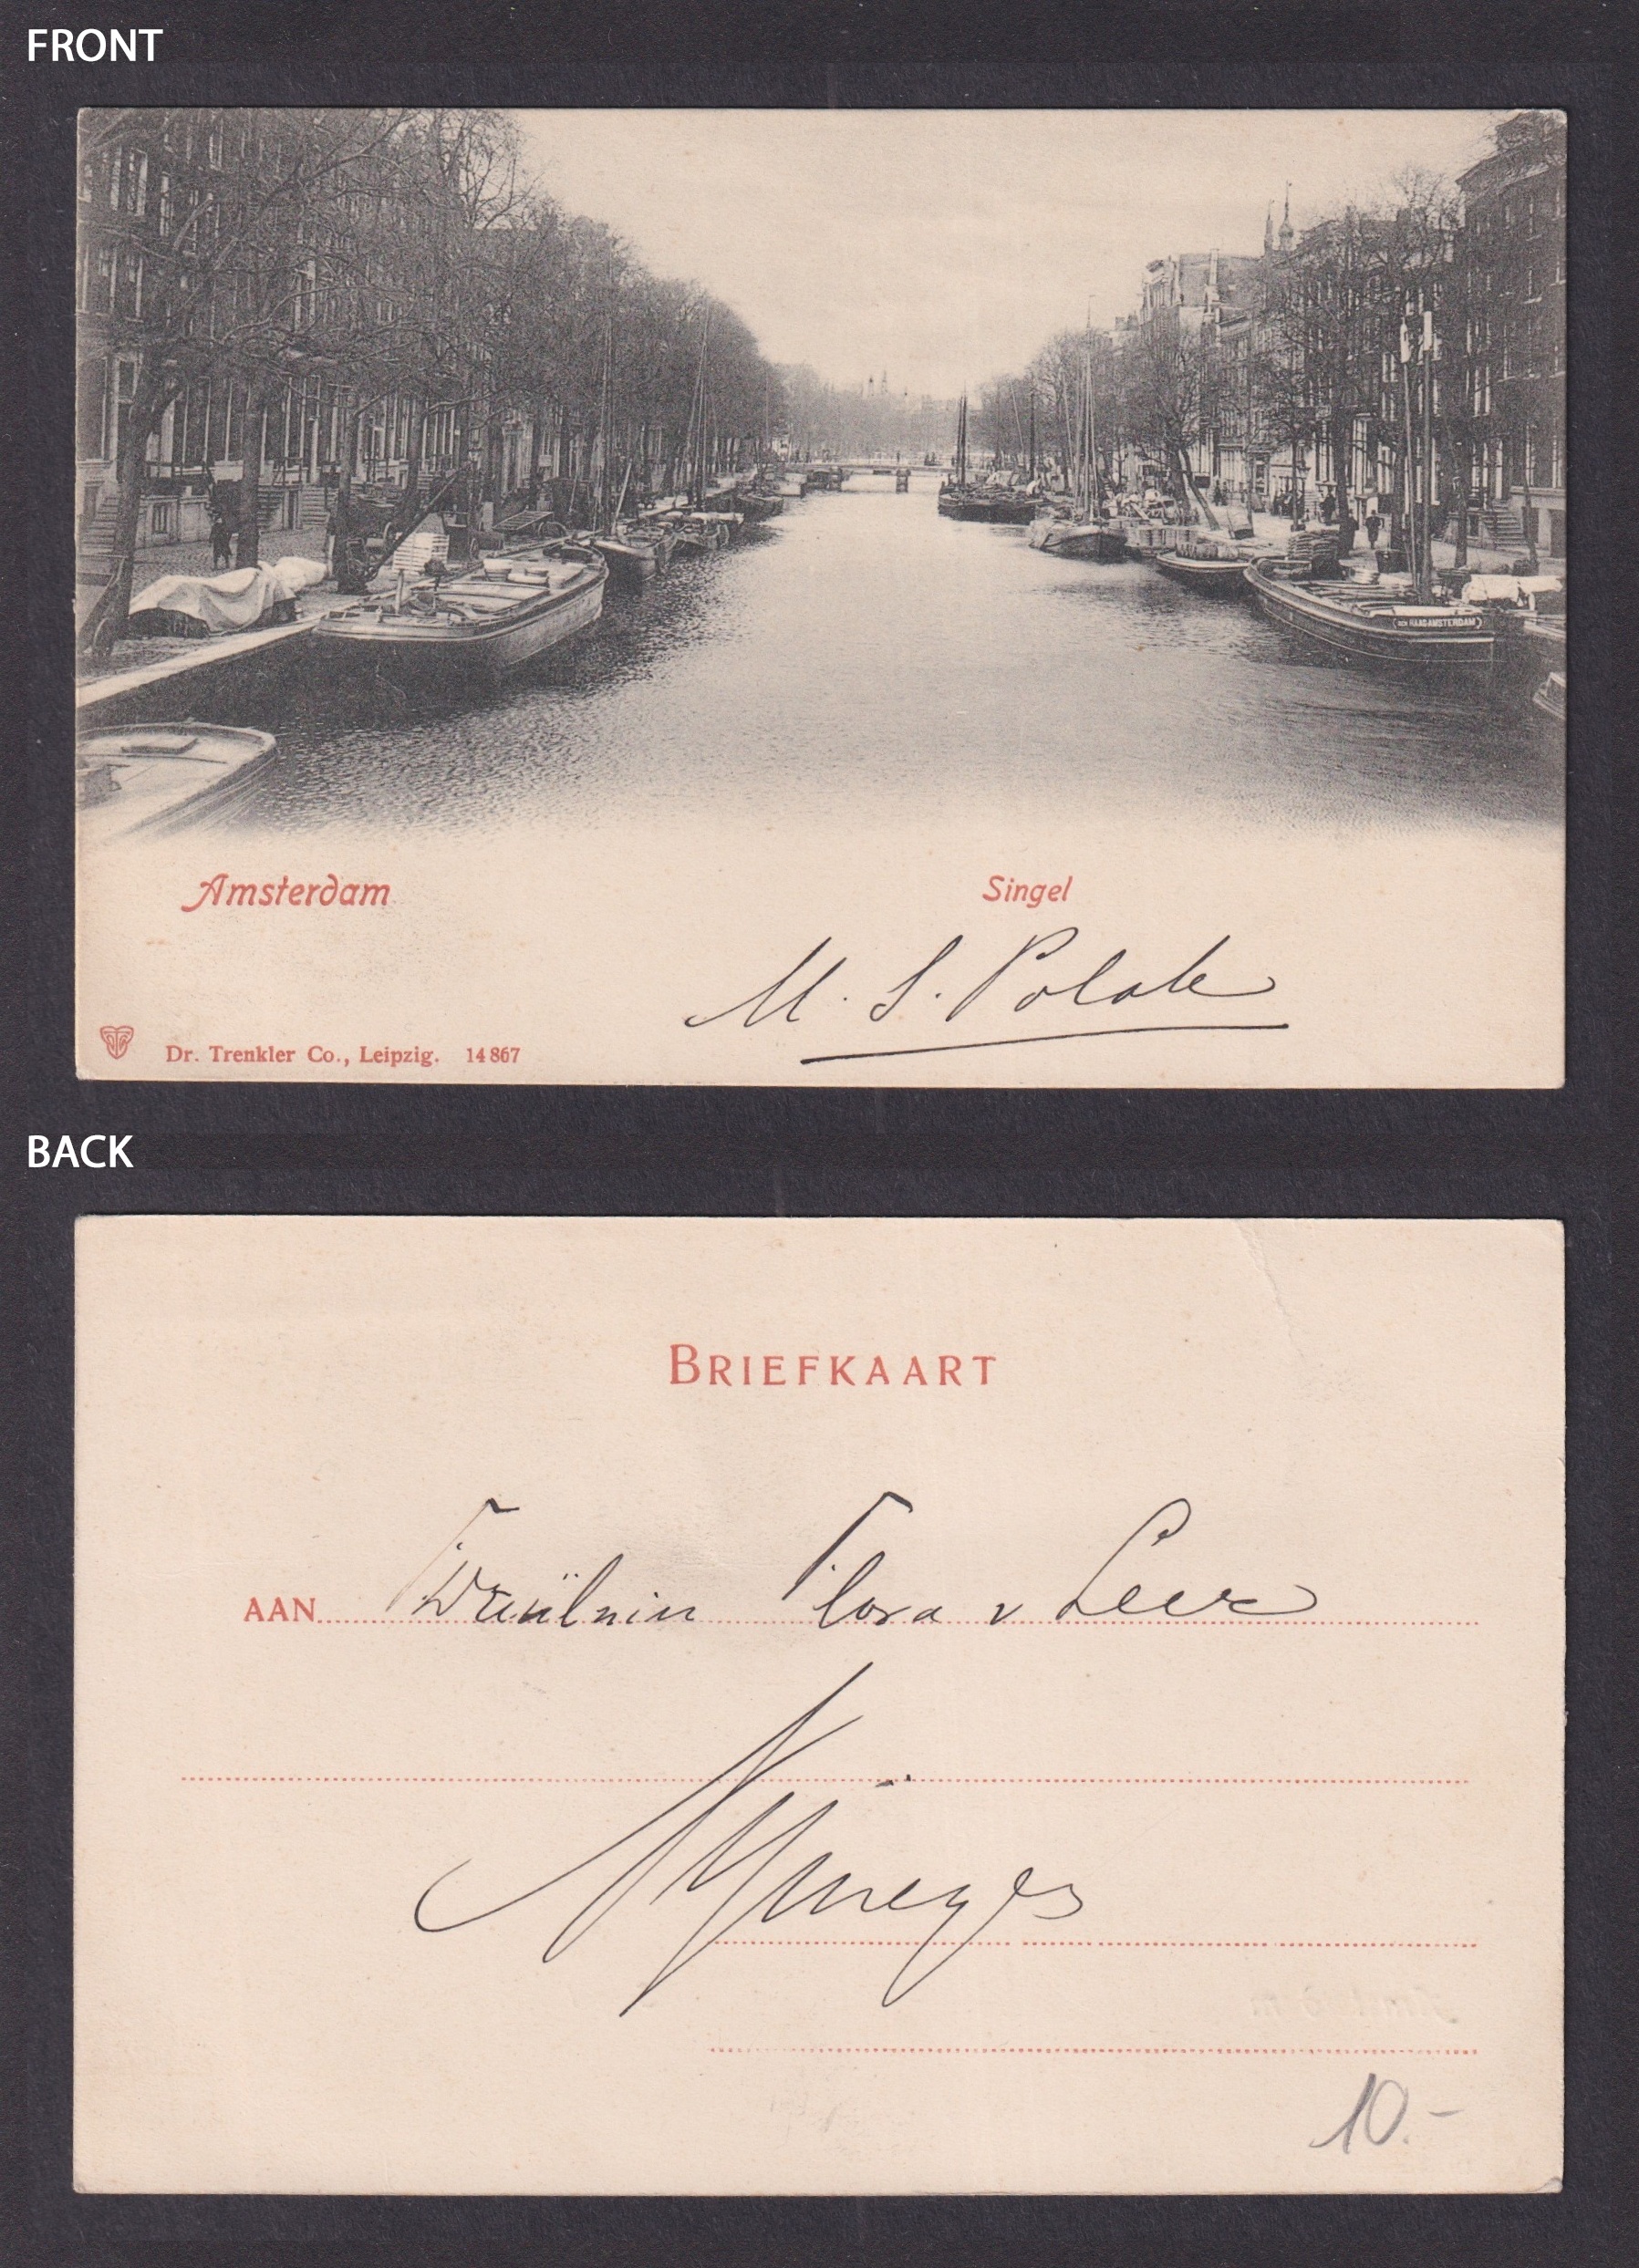 FRONT
(DEN HAAG-AMSTERDAM)
Amsterdam
Singel
M. S. Polak
Dr. Trenkler Co., Leipzig. 14867
BACK
BRIEFKAART
AAN Fräulein Flora v Leer
Nijmegen
10.-